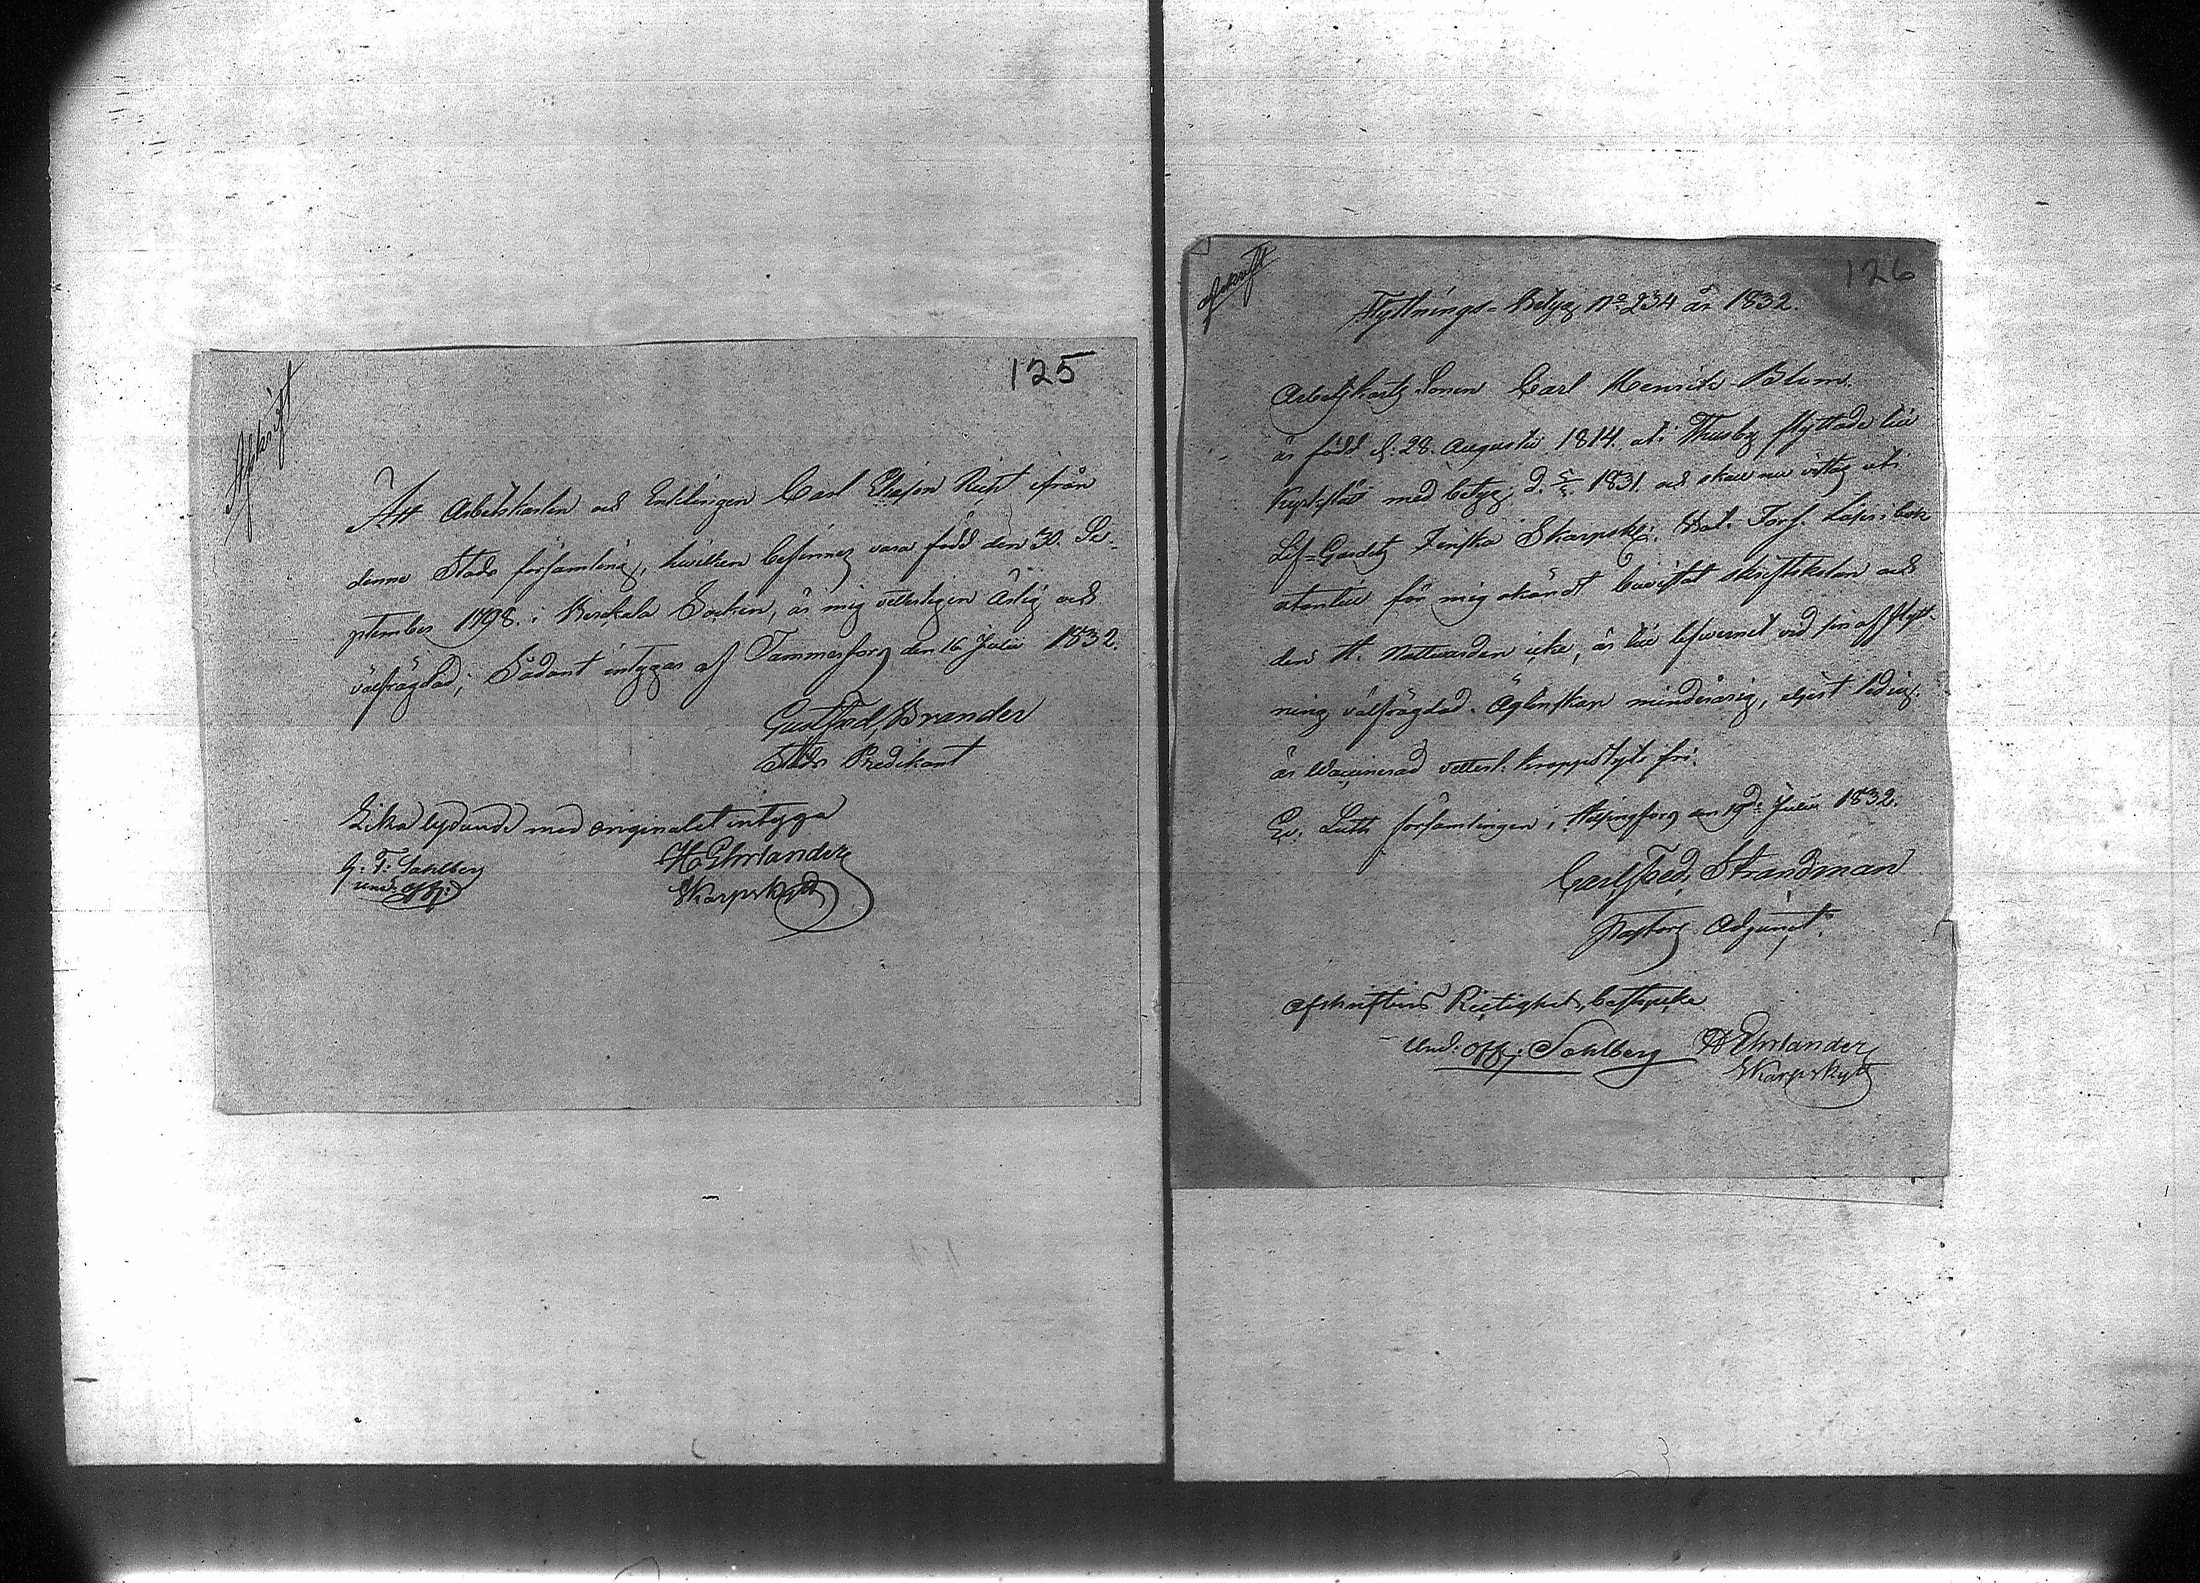 Afskrift
125
Att Arbetskarlen och Enklingen Carl Eliasson Richt ifrån
denne Stads församling, hwilken befinnes vara född den 30. Se-
ptember 1798. i Birckala Socken, är mig vetterligen ärlig och
välfrägdad; Sådant intygas af Tammerfors den 16 Julii 1832.
Gust. Fred. Brander
Stads Predikant
Lika lydande med originalet intyga
G. F. Sahlberg
und: off:
H Ehrlander
Skarpskytt
afskrift
126
Flyttnings-Betyg No 234 år 1832.
Arbetskarls Sonen Carl Henrik Blom.
är född d: 28. Augusti 1814. uti Thusby flyttade till
med betyg d. 1831. och skall nu uti
Lif-Gardets Finska Skarpsk: Bat. Förs. Läser i bok
utantill för mig okändt bewistat skriftskolan och
den H. Nattvarden icke, är till lefwernet vid sin afflytt-
ning välfrägdad. Ägtenskap minderårig, eljest ledig.
är Waccinerad vetterl. kroppslyte fri.
Ev: Luth församlingen i Helsingfors den 19de Julii 1832.
Carl Fred. Strandman
Pastors Adjunct.
afskriftens Rigtighet, bestyrka
Und: off: Sahlberg H Ehrlander
Skarpskytt